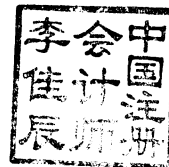 中国注册
会计师
李佳辰